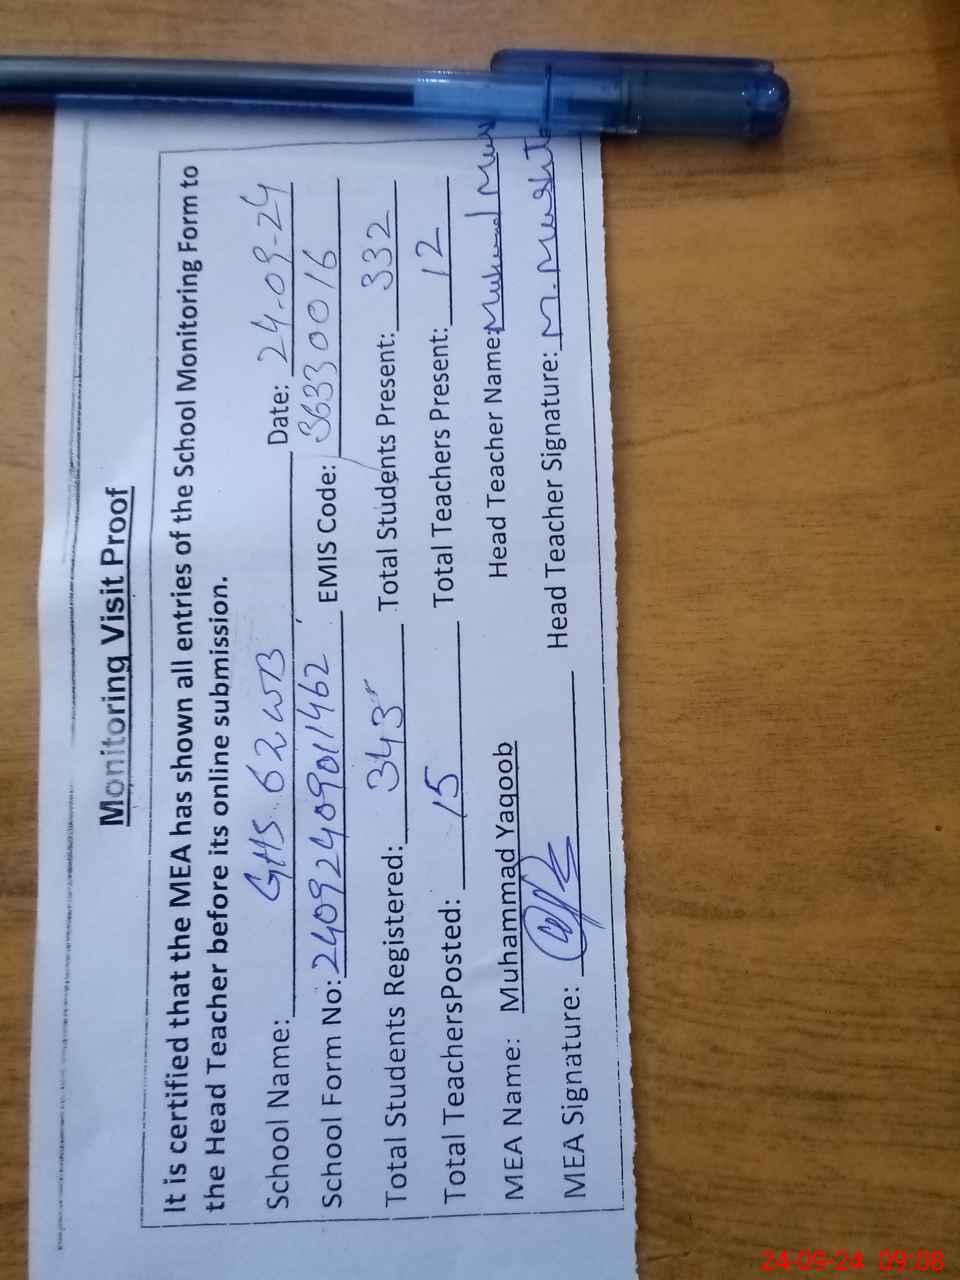 Monitoring Visit Proof
It is certified that the MEA has shown all entries of the School Monitoring Form to
the Head Teacher before its online submission.
School Name: GHS 62 WB Date: 24-09-24
School Form No: 24092409011462 EMIS Code: 36330016
Total Students Registered: 343 Total Students Present: 332
Total TeachersPosted: 15 Total Teachers Present: 12
MEA Name: Muhammad Yaqoob Head Teacher Name:
MEA Signature: Head Teacher Signature: M.
24-09-24 09:08